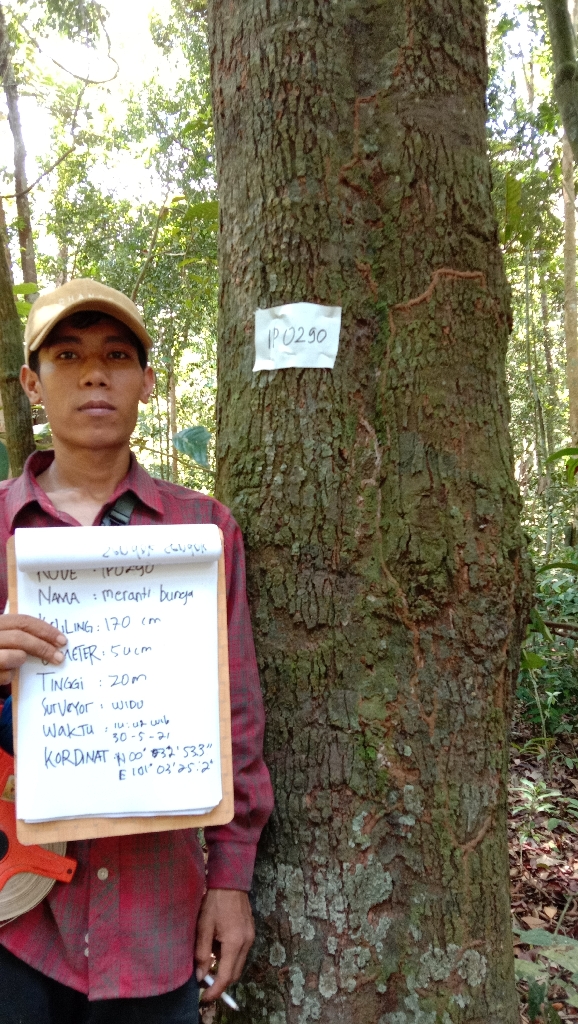 IP0290
KODE : IP0290
NAMA : Meranti bunga
KELILING : 170 cm
DIAMETER : 50 cm
TINGGI : 20 m
SURVEYOR : WIDU
WAKTU : 10:02 WIB
30-5-21
KORDINAT : N 00° 32' 53.3"
E 101° 03' 25.2"